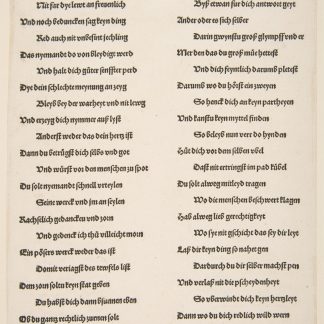 Nit far dye lewt an freuenlich
Und noch beduncken sag keyn ding
Red auch nit unbesint jehling
Das nyemandt do von bleydigt werd
Und halt dich güter senffter perd
Dye dein schlechte meynung an zeyg
Bleyb bey der warheyt und nit lewg
Und erzeyg dich nymmer auff lyst
Anderst weder das dein hertz ist
Dann du betrügst dich selbs und got
Und würst vor den menschen zu spot
Du solt nyemandt schnell urteylen
Seine werck und jm an seylen
Rachselich gedancken und zorn
Und gedenck ich thů villeicht morn
Ein pösers werck weder das ist
Domit veriagst des tewfels list
Dem zorn soltu keyn stat geben
Du habst dich dann bsunnen eben
Ob du gantz rechtlich zürnen solt
Byß etwan für dich antwort geyt
Ander oder es sich selber
Darin gwynstu groß glympff und er
Wer den das du groß müe hettest
Und dich feyntlich darumb pletest
Darumb wo du hörst ein zweyen
So henck dich an keyn partheyen
Und kanstu keyn myttel finden
So beleyb nun vert do hynden
Hüt dich vor dem selben bild
Dast nit ertrinst im pad kübel
Du solt alweg mitleyd tragen
Wo die menschen beschwert klagen
Hab alweg lieb gerechtigkeyt
Wo sye nit gschicht das sey dir leyt
Laß dir keyn ding so naher gen
Dardurch du dir selber machst pen
Und verlaß nit die pscheydenheyt
So uberwindt dich keyn hertzleyt
Dann wo du dich redlich wild wern